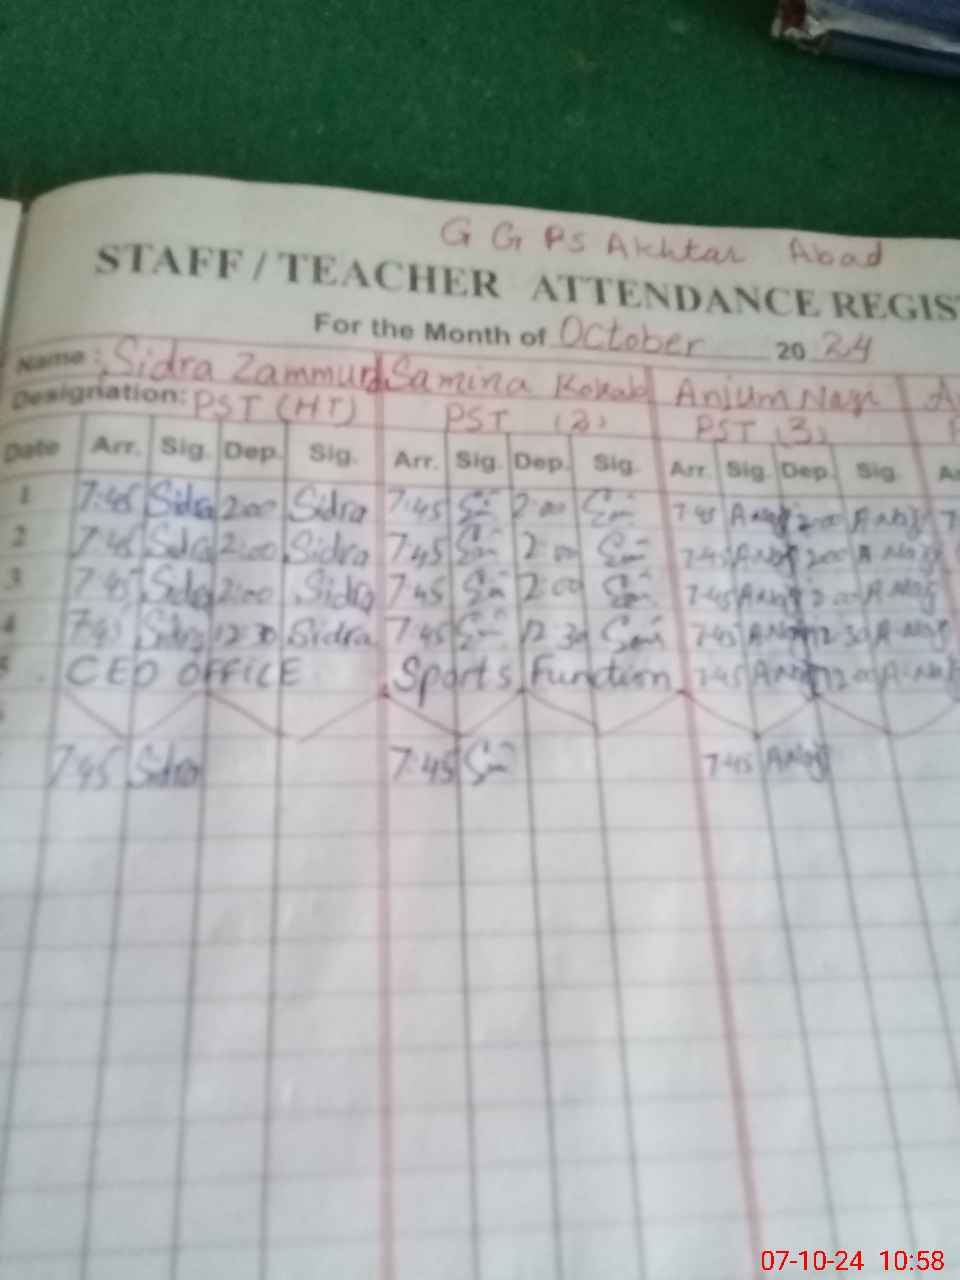 G G PS Akhtar Abad
STAFF / TEACHER ATTENDANCE REGIS
For the Month of October 2024
Name: Sidra Zammurd Samina Kokab Anjum Naqi A
Designation: PST (HT) PST (2) PST (3) P
Date Arr. Sig. Dep. Sig. Arr. Sig. Dep. Sig. Arr. Sig. Dep. Sig. Ar
1 7:45 Sidra 2:00 Sidra 7:45 2:00 7:45 2:00 7
2 7:45 Sidra 2:00 Sidra 7:45 2:00 7:45 2:00
3 7:45 Sidra 2:00 Sidra 7:45 2:00 7:45 2:00
4 7:45 Sidra 12:30 Sidra 7:45 12:30 7:45 12:30
5 CEO OFFICE Sports Function 7:45 12:00
7:45 Sidra 7:45 7:45
07-10-24 10:58